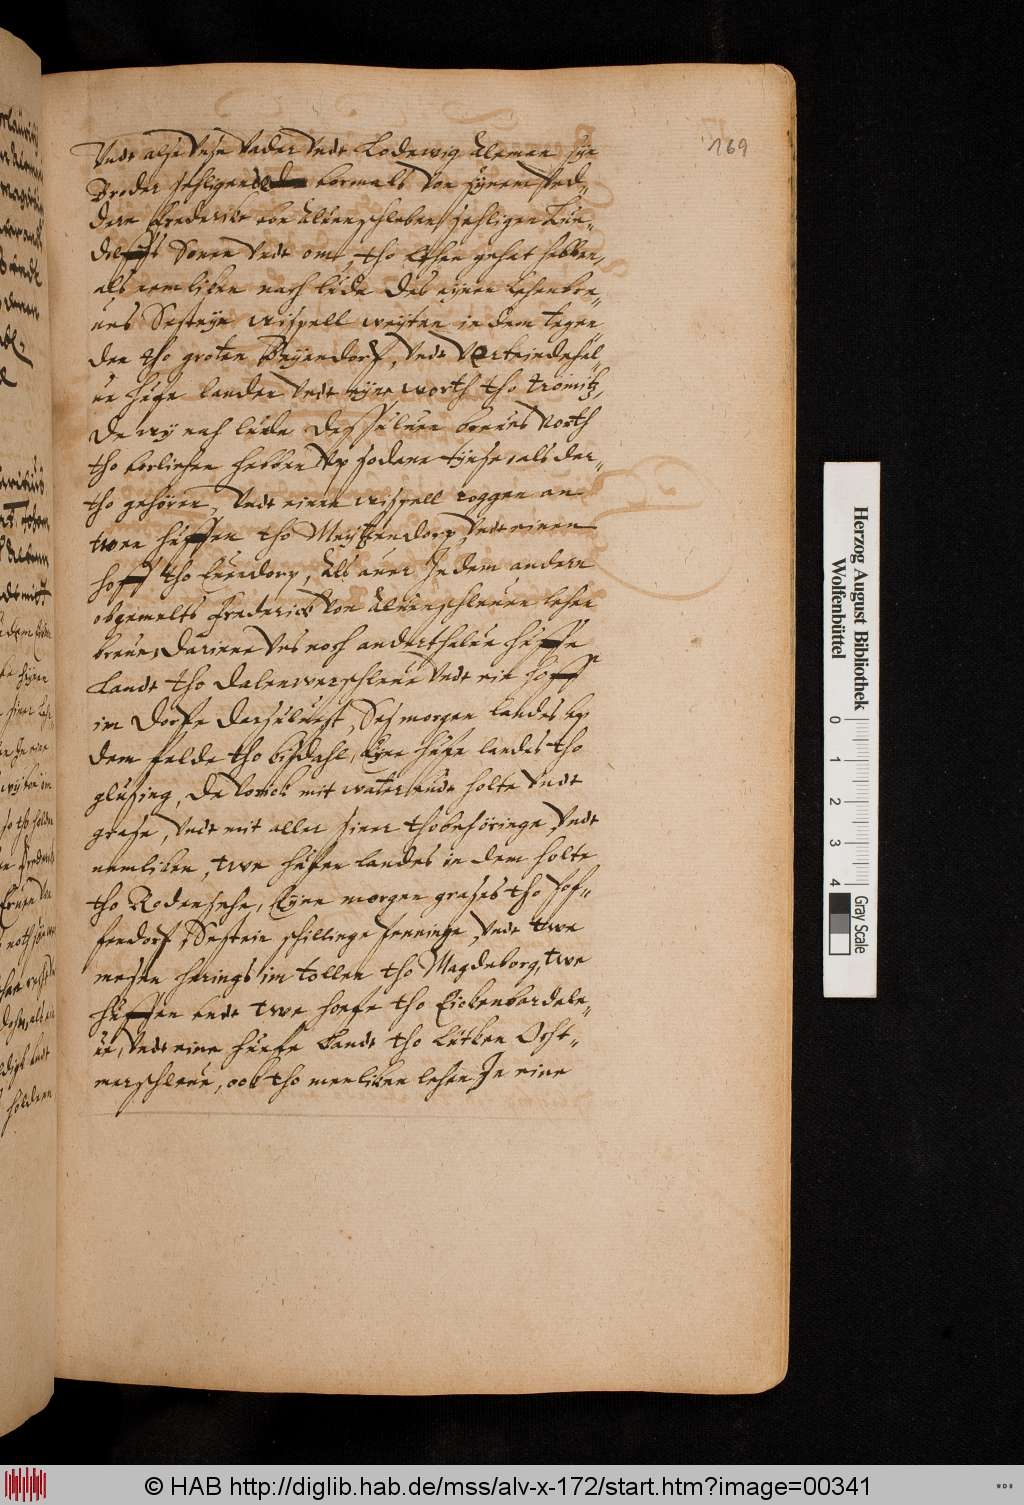 169
Vndt alse vnse Vader vndt Lodewig Aleman syn
Broder sehligen vormals von synem Ved-
dern Frederick von Aluenschleben sehligen Lü-
dolffs Sonen vndt ome, tho Lehen gehat hebben,
als nemliken nach lude des eynen Lehenbre-
ues Sesteyn wispell weyten in dem tegen-
den tho groten Beyendorf, vndt
ue hufe landes vndt eyne worth tho
De wy nah lude dessuluen breues vorth
tho vorliehen hebben vp sodane tynse, als dar-
tho gehören, vndt einen wispell roggen an
twen huffen tho Meytzendorp vndt einen
hoff tho Euendorp, Als auer In dem andern
obgemelts Frederick von Aluenschleuen lehen
breue, darinne vns noch anderthalue huffe
Landt tho Dalenwarschleue vndt ein hoff
im Dorfe darsuluest, Ses morgen landes vp
dem felde tho bisdahl, Eyne hufe landes tho
glusing, De mit water, wide holte vndt
grase, vndt mit aller siner thobehöringe, vndt
nemliken, twe hufen landes in dem holte
tho Rodensehe, Eyne morgen grases tho Hof-
fendorf, Sestein schillinge penninge, vndt twe
mesen herings im tollen tho Magdeborg, twe
huffen vndt twe hoefe tho Eickenbardele-
ue, vndt eine huefe Landt tho Lütken Ost-
merschleue, ook tho menliken lehen In eine
Herzog August Bibliothek
Wolfenbüttel
0 1 2 3 4
Gray Scale
© HAB http://diglib.hab.de/mss/alv-x-172/start.htm?image=00341